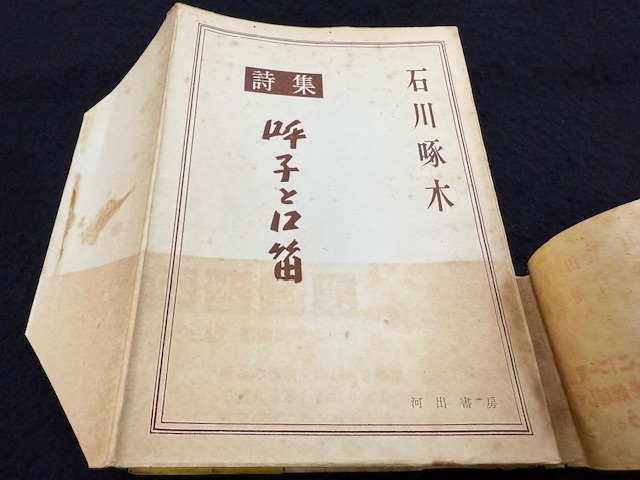 石川啄木
詩集
呼子と口笛
河出書房